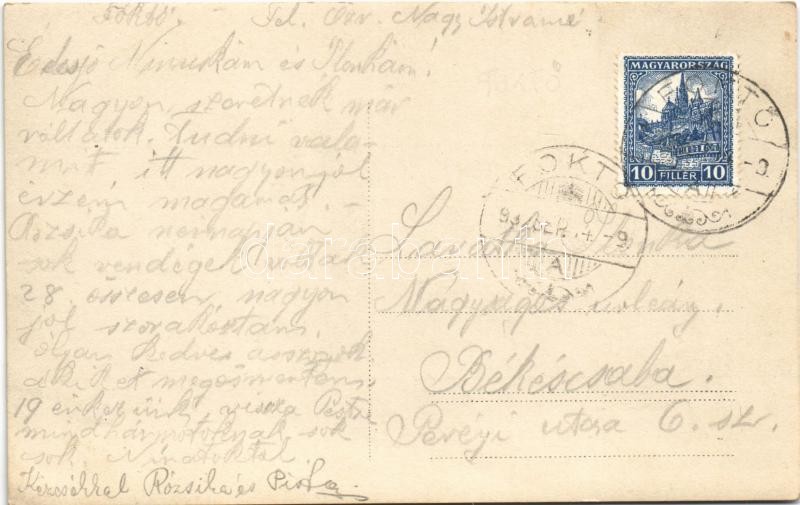 Foktő. - Tel. Özv. Nagy Istvánné
Édesjó Ninuskám és Ilonkám!
Nagyon szeretnék már
rólatok tudni vala-
mit itt nagyon jól
érzem magamat. -
Rózsika névnapján
sok vendégek voltak
28. összesen, nagyon
jól szórakoztam.
olyan kedves asszonyok
akiket megösmertem.
19 én vissza Pestre
sok
sok. Ninatoktól.
Kézcsókkal Rózsika és Pista
MAGYARORSZÁG
10 FILLÉR 10
FOKTŐ
FOKTŐ
A
darabanth
Ilonka
Nagyságos urleány.
Békéscsaba.
Perényi utca 6. sz.